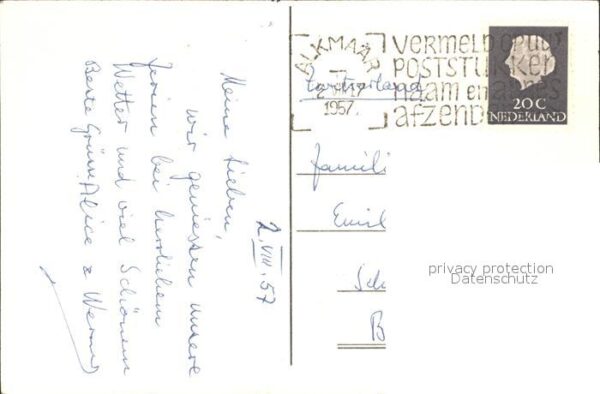 2.VIII.57
Meine Lieben,
wir geniessen unsere
Ferien bei herrlichem
Wetter und viel Schönem
Beste Grüsse Alice & Werner
ALKMAAR
1957
VERMELD OP UW
POSTSTUKKEN
NAAM en ADRES
afzender
20C
NEDERLAND
Famili
Emil
Sch
B
privacy protection
Datenschutz